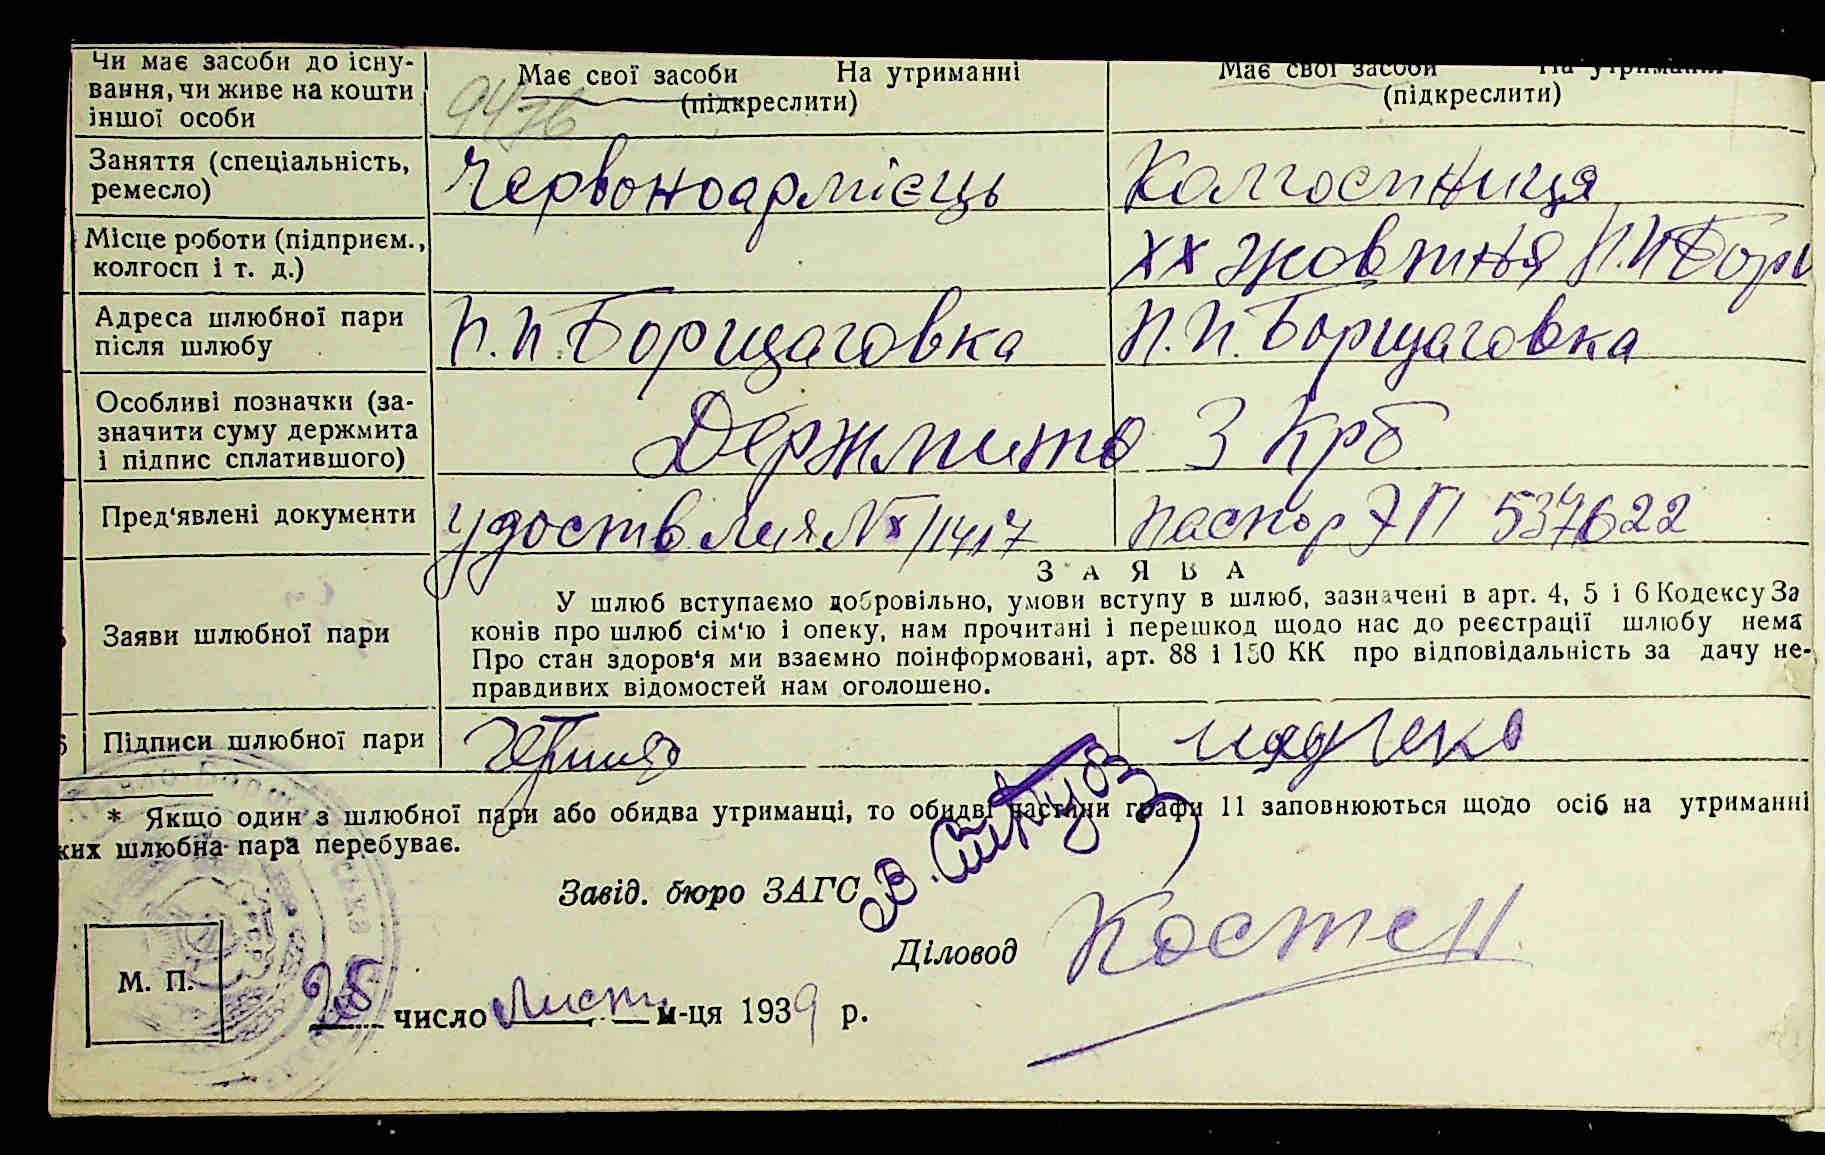 Чи має засоби до існу-
вання, чи живе на кошти
іншої особи
Має свої засоби На утриманні
(підкреслити)
9476
Має свої засоби На утриманні
(підкреслити)
Заняття (спеціальність,
ремесло)
Червоноармієць
Колгоспниця
Місце роботи (підприєм.,
колгосп і т. д.)
ХХ Жовтня П.П Борщ
Адреса шлюбної пари
після шлюбу
П.П. Борщаговка
П.П. Борщаговка
Особливі позначки (за-
значити суму держмита
і підпис сплатившого)
Держмито 3 Крб
Пред'явлені документи
Удоствлия №
Паспор ЭП 537622
З А Я В А
Заяви шлюбної пари
У шлюб вступаємо добровільно, умови вступу в шлюб, зазначені в арт. 4, 5 і 6 Кодексу За
конів про шлюб сім'ю і опеку, нам прочитані і перешкод щодо нас до реєстрації шлюбу нема
Про стан здоров'я ми взаємно поінформовані, арт. 88 і 150 КК про відповідальність за дачу не-
правдивих відомостей нам оголошено.
Підписи шлюбної пари
* Якщо один з шлюбної пари або обидва утриманці, то обидві частини графи 11 заповнюються щодо осіб на утриманні
ких шлюбна пара перебуває.
Завід. бюро ЗАГС
Діловод Костен
М. П.
28 число Лист м-ця 1939 р.